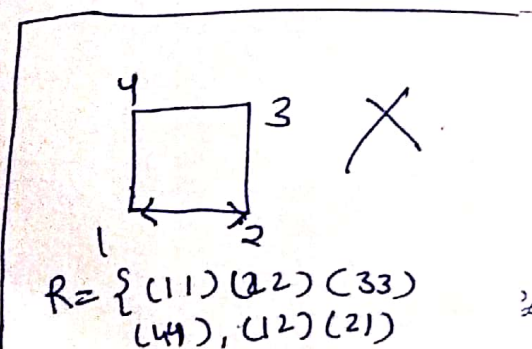 4
3
1
2
R= { (11) (22) (33)
(44), (12) (21)